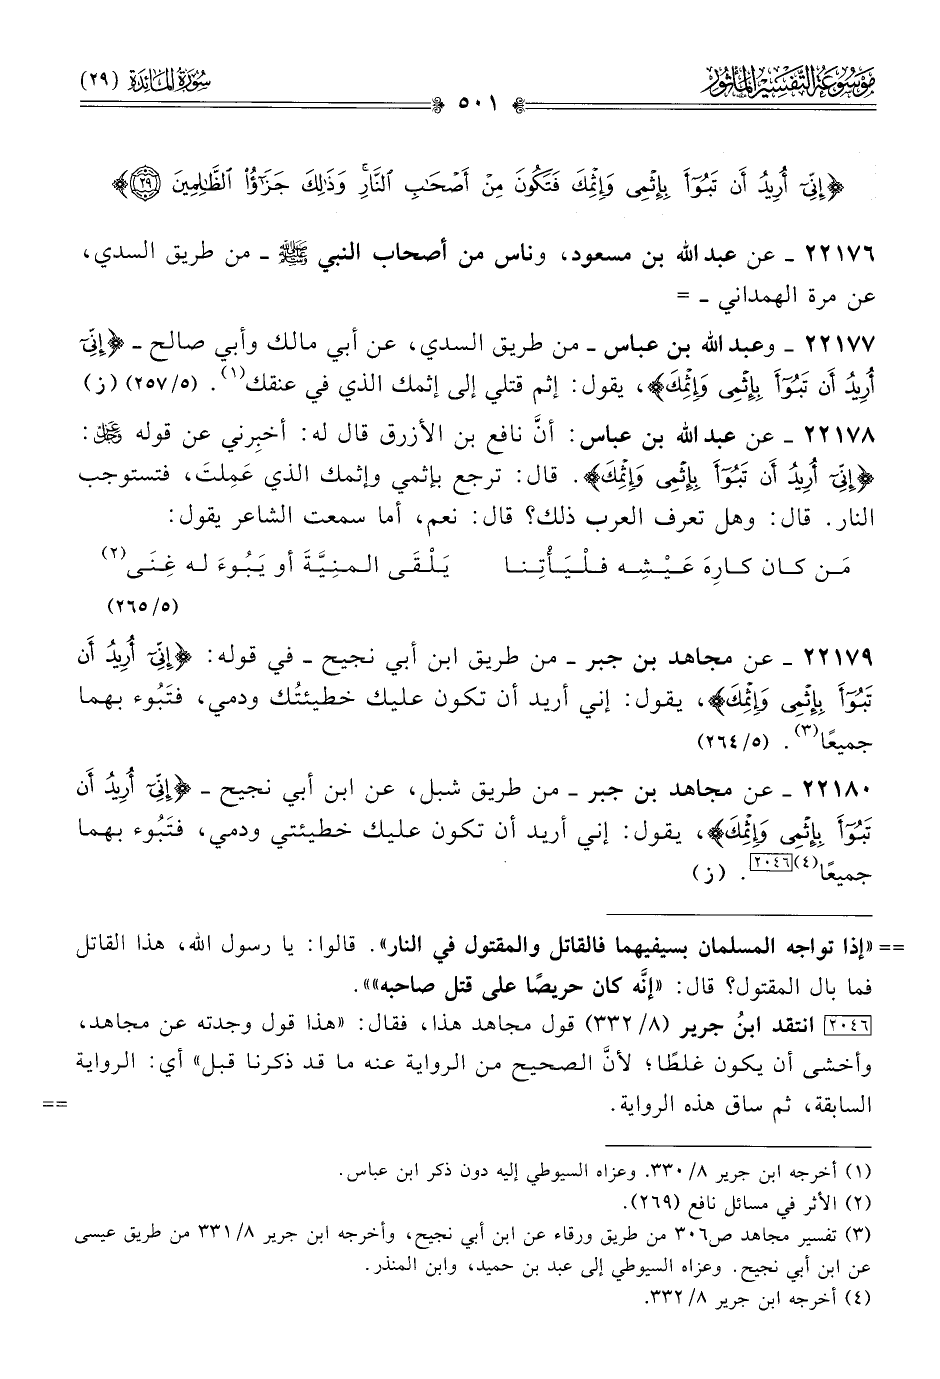 موسوعة التفسير المأثور
سورة المائدة (٢٩)
٥٠١
﴿إِنِّىٓ أُرِيدُ أَن تَبُوٓأَ بِإِثْمِى وَإِثْمِكَ فَتَكُونَ مِنْ أَصْحَٰبِ ٱلنَّارِ ۚ وَذَٰلِكَ جَزَٰٓؤُا۟ ٱلظَّٰلِمِينَ ۝٢٩﴾
٢٢١٧٦ ـ عن عبد الله بن مسعود، وناس من أصحاب النبي ﷺ ـ من طريق السدي،
عن مرة الهمداني ـ =
٢٢١٧٧ ـ وعبد الله بن عباس ـ من طريق السدي، عن أبي مالك وأبي صالح ـ ﴿إِنِّىٓ
أُرِيدُ أَن تَبُوٓأَ بِإِثْمِى وَإِثْمِكَ﴾، يقول: إثم قتلي إلى إثمك الذي في عنقك(١). (٢٥٧/٥) (ز)
٢٢١٧٨ ـ عن عبد الله بن عباس: أنَّ نافع بن الأزرق قال له: أخبِرني عن قوله ﷿:
﴿إِنِّىٓ أُرِيدُ أَن تَبُوٓأَ بِإِثْمِى وَإِثْمِكَ﴾. قال: ترجع بإثمي وإثمك الذي عَمِلتَ، فتستوجب
النار. قال: وهل تعرف العرب ذلك؟ قال: نعم، أما سمعت الشاعر يقول:
مَن كان كارِهَ عَيْشِه فلْيَأْتِنا يَلْقَى المنِيَّةَ أو يَبُوءَ له غِنَى(٢)
(٢٦٥/٥)
٢٢١٧٩ ـ عن مجاهد بن جبر ـ من طريق ابن أبي نجيح ـ في قوله: ﴿إِنِّىٓ أُرِيدُ أَن
تَبُوٓأَ بِإِثْمِى وَإِثْمِكَ﴾، يقول: إني أريد أن تكون عليك خطيئتُك ودمي، فتَبُوء بهما
جميعًا(٣). (٢٦٤/٥)
٢٢١٨٠ ـ عن مجاهد بن جبر ـ من طريق شبل، عن ابن أبي نجيح ـ ﴿إِنِّىٓ أُرِيدُ أَن
تَبُوٓأَ بِإِثْمِى وَإِثْمِكَ﴾، يقول: إني أريد أن تكون عليك خطيئتي ودمي، فتَبُوء بهما
جميعًا(٤)[٢٠٤٦]. (ز)
== «إذا تواجه المسلمان بسيفيهما فالقاتل والمقتول في النار». قالوا: يا رسول الله، هذا القاتل
فما بال المقتول؟ قال: «إنَّه كان حريصًا على قتل صاحبه»».
[٢٠٤٦] انتقد ابنُ جرير (٣٣٢/٨) قول مجاهد هذا، فقال: «هذا قول وجدته عن مجاهد،
وأخشى أن يكون غلطًا؛ لأنَّ الصحيح من الرواية عنه ما قد ذكرنا قبل» أي: الرواية
السابقة، ثم ساق هذه الرواية. ==
(١) أخرجه ابن جرير ٣٣٠/٨. وعزاه السيوطي إليه دون ذكر ابن عباس.
(٢) الأثر في مسائل نافع (٢٦٩).
(٣) تفسير مجاهد ص٣٠٦ من طريق ورقاء عن ابن أبي نجيح، وأخرجه ابن جرير ٣٣١/٨ من طريق عيسى
عن ابن أبي نجيح. وعزاه السيوطي إلى عبد بن حميد، وابن المنذر.
(٤) أخرجه ابن جرير ٣٣٢/٨.